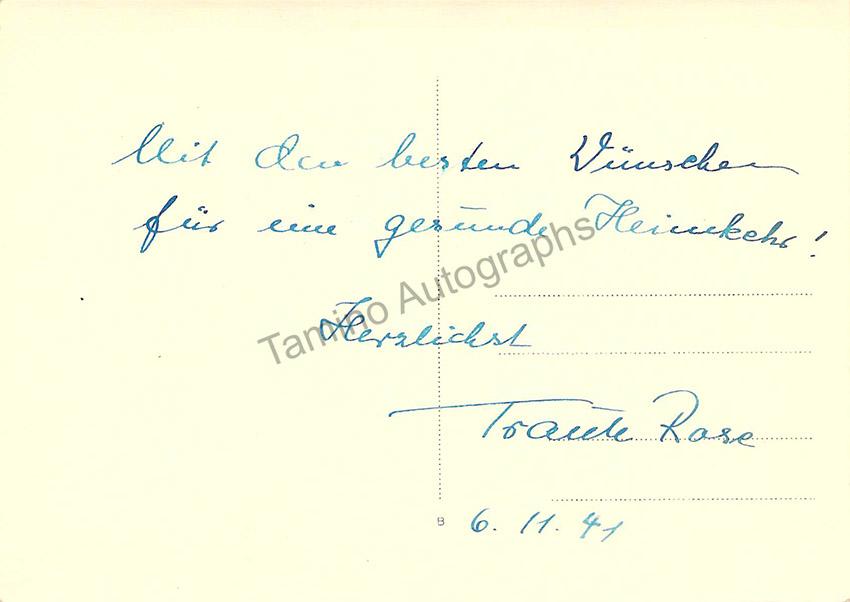 Mit den besten Wünschen
für eine gesunde Heimkehr!
Tamino Autographs
Herzlichst
Traute Rose
B 6.11.41